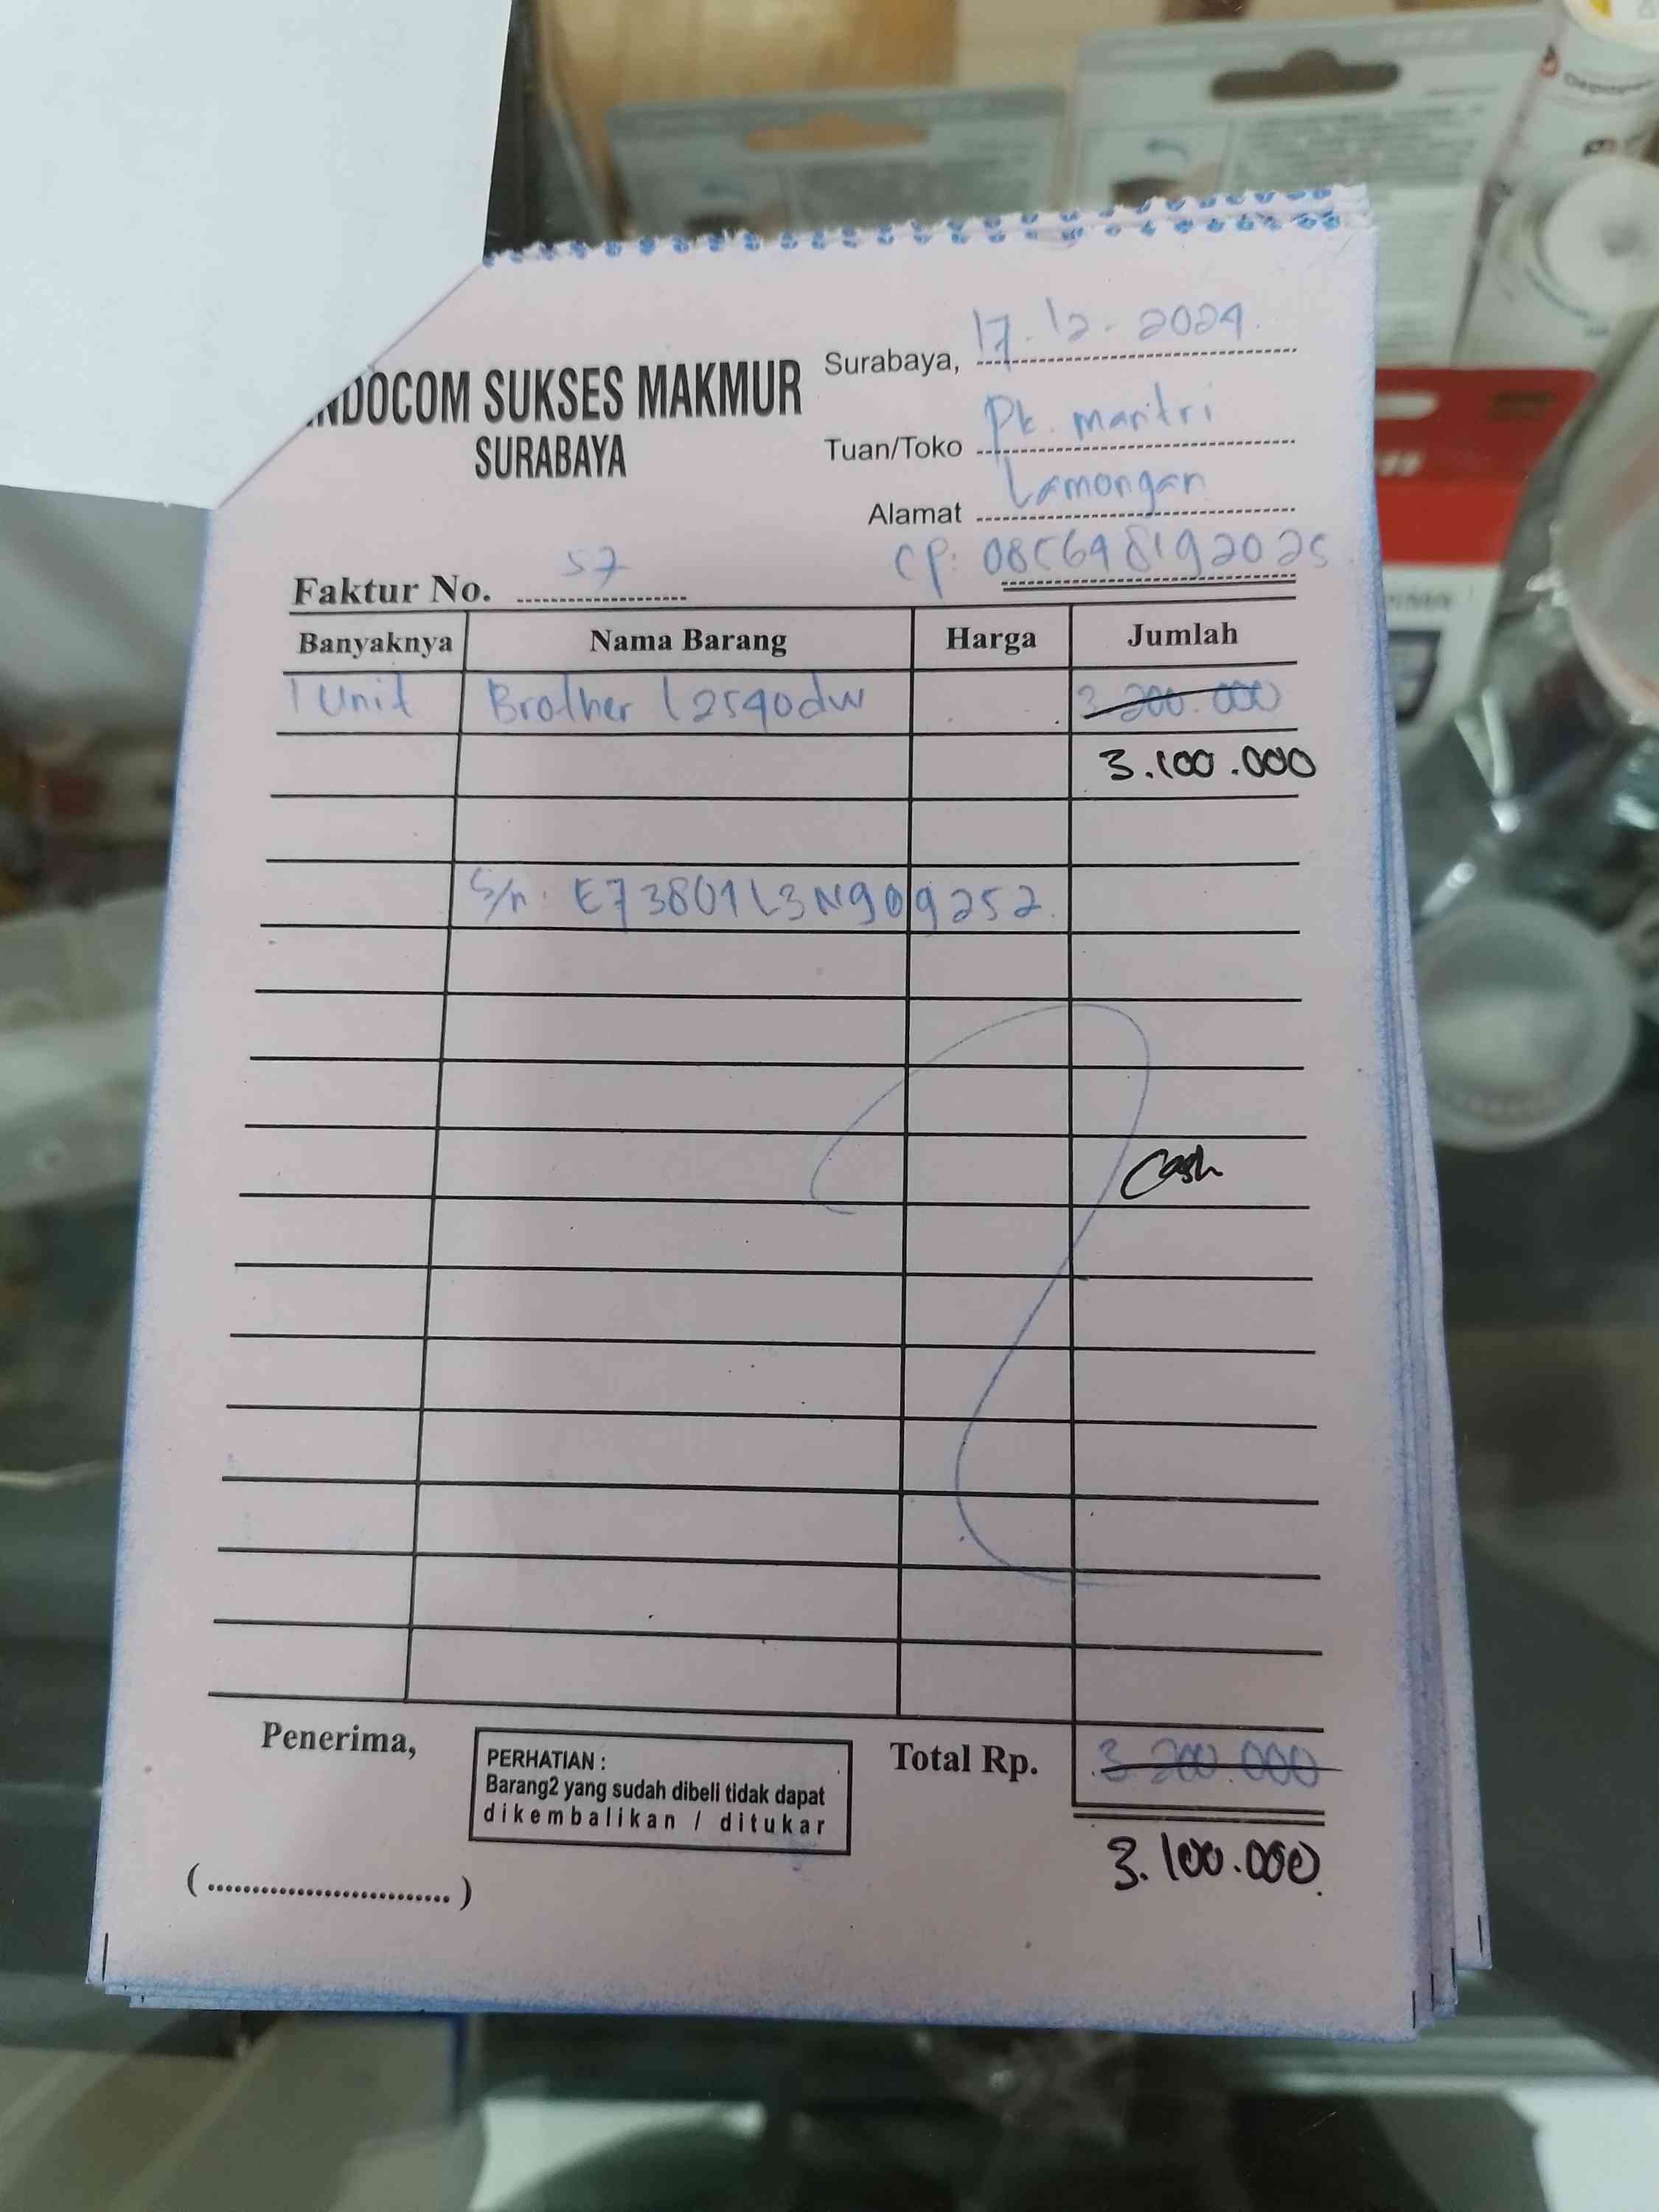 INDOCOM SUKSES MAKMUR
SURABAYA
Surabaya, 17.12.2024.
Tuan/Toko Pk. mantri
Alamat Lamongan
CP: 085648192025
Faktur No. 57
Banyaknya Nama Barang Harga Jumlah
1 Unit Brother L2540dw 3.200.000
3.100.000
S/n. E73801L3N909252.
Cash
Penerima,
PERHATIAN :
Barang2 yang sudah dibeli tidak dapat
dikembalikan / ditukar
Total Rp. 3.200.000
3.100.000
(............................)